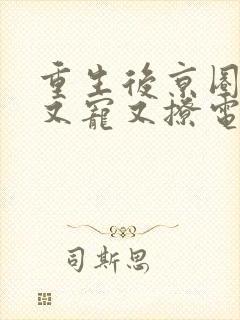 重生後京圈
又寵又撩電
司斯思